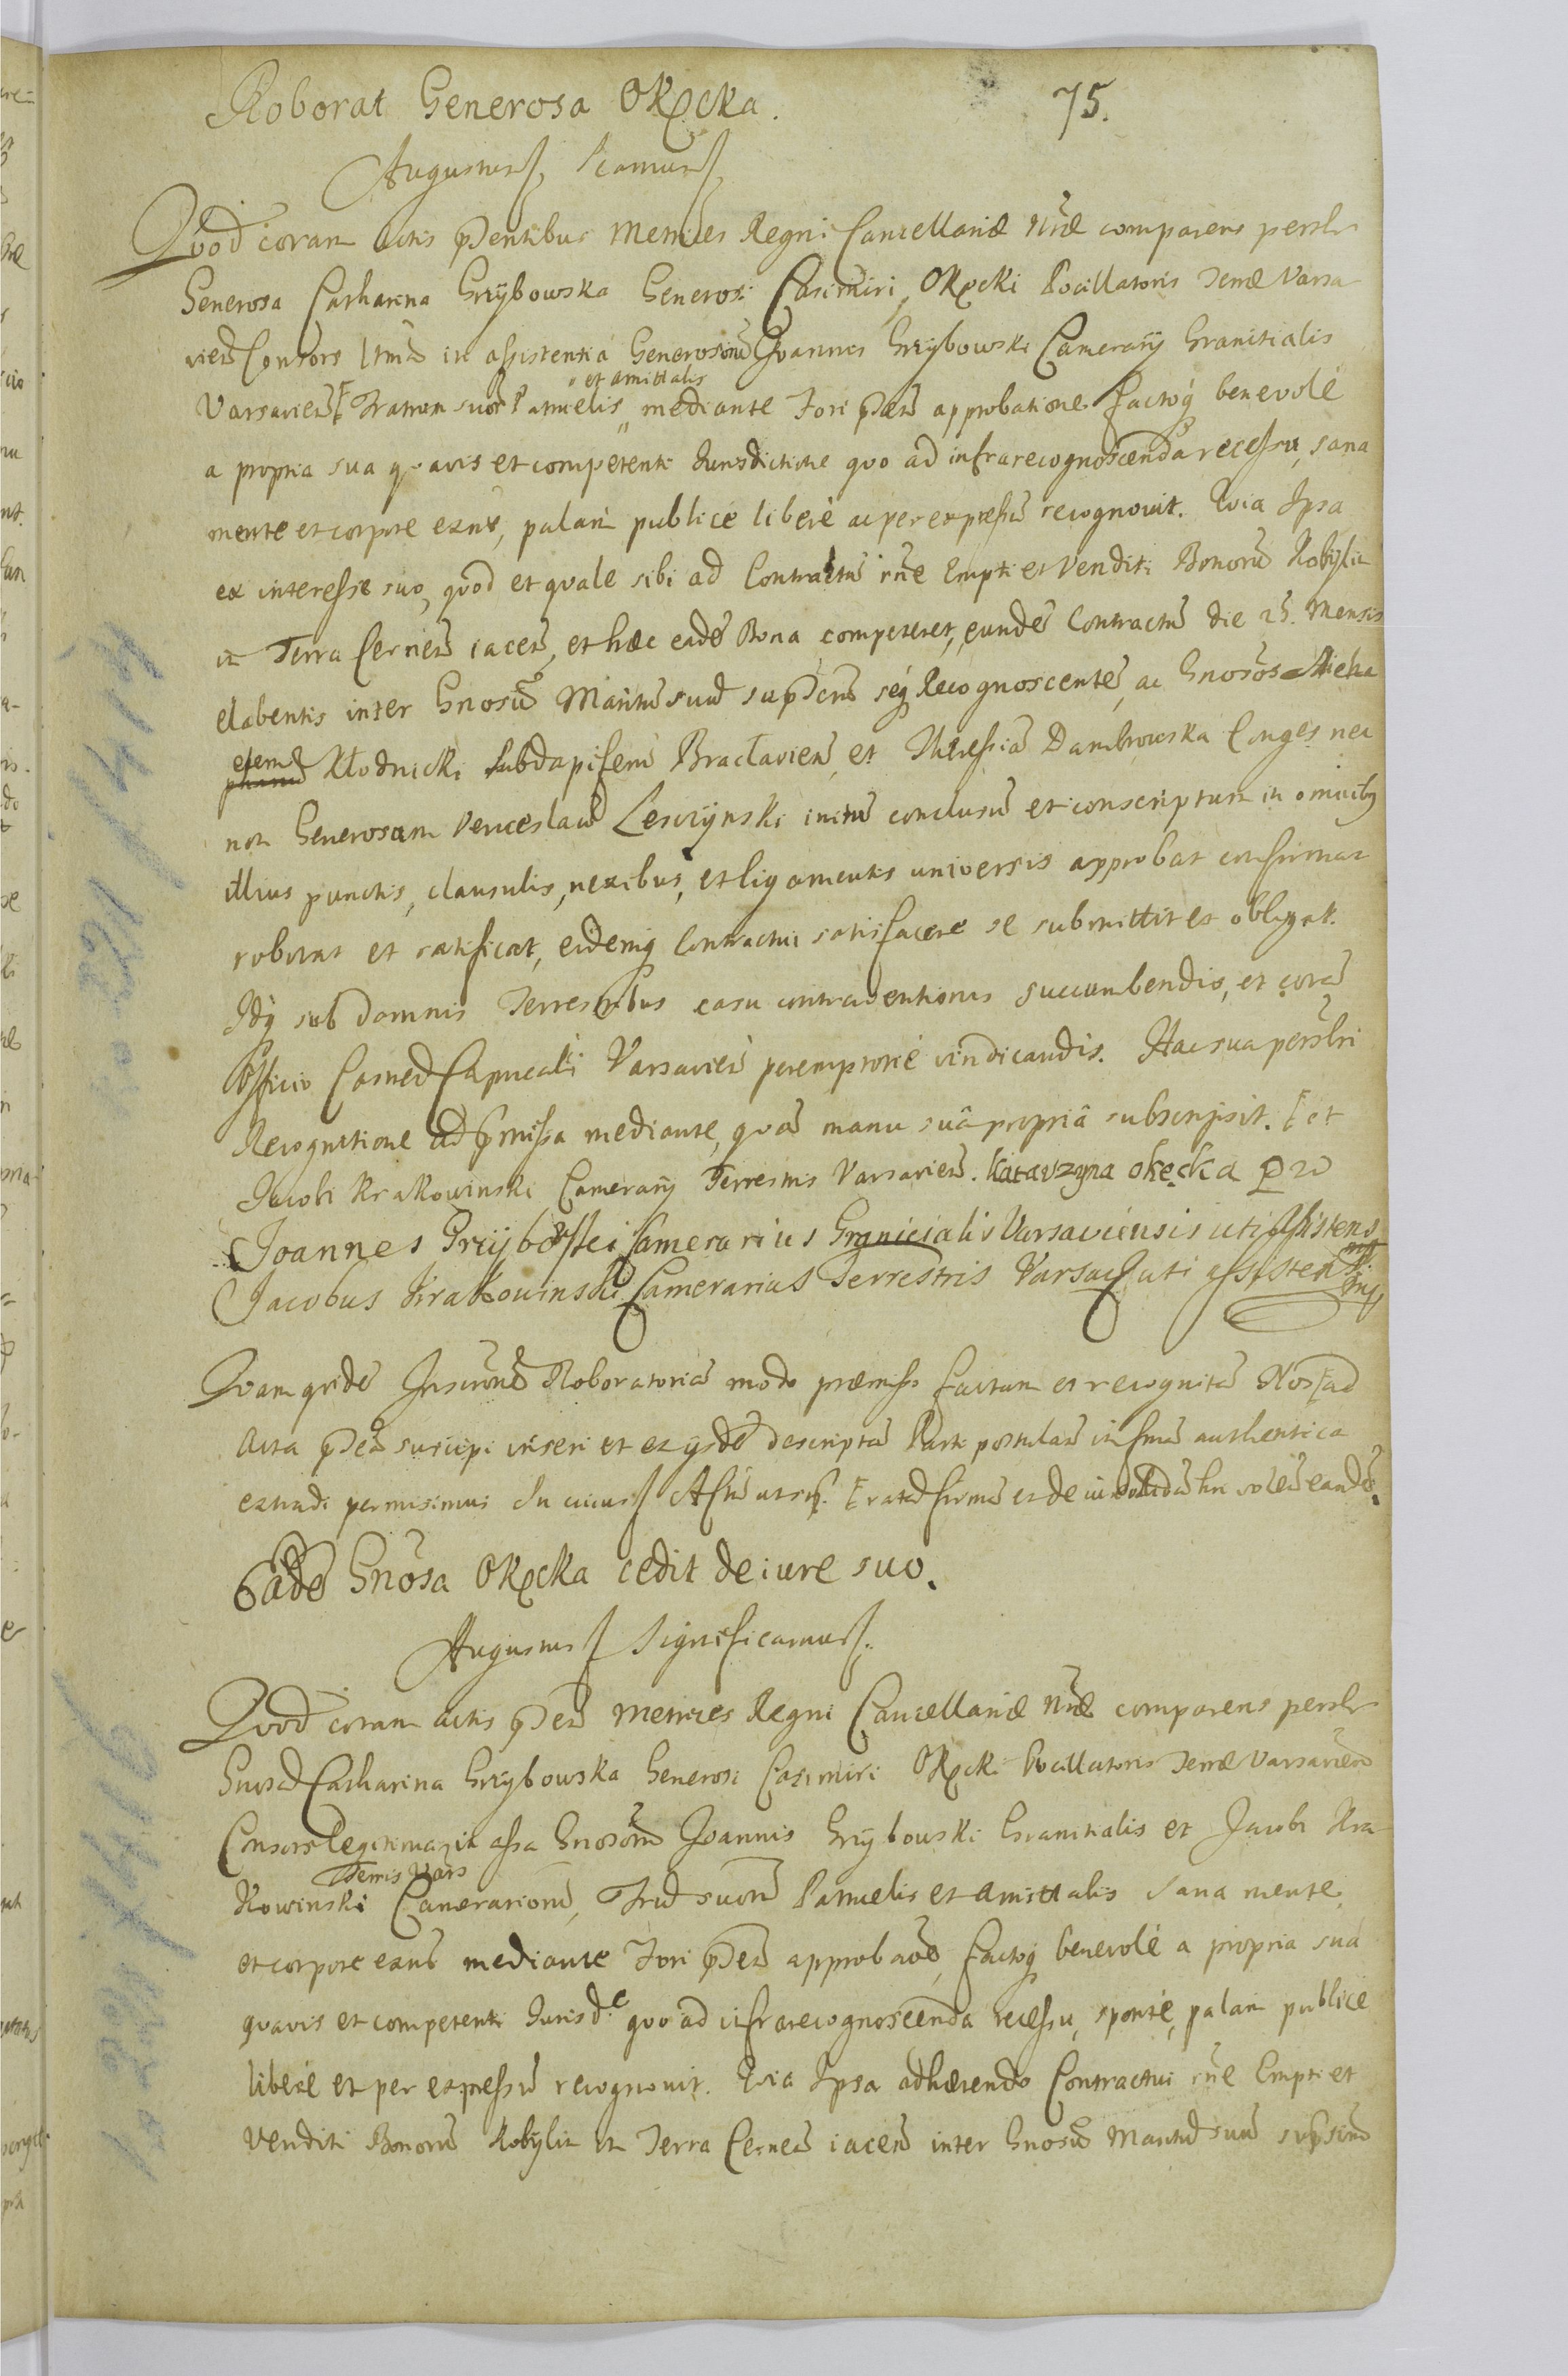 Roborat Generosa Okęcka. 75.
Augustus Significamus
Quod coram actis pntibus Metrices Regni Cancellariæ Nræ comparens persolr
Generosa Catharina Grzybowska Generosi Casimiri Okęcki Pocillatoris Terræ Varsa
vien Consors ltma in assistentia Generosorum Joannis Grzybowski Camerarÿ Granitialis
et amittalis
Varsavien [ Fratrum suor Patruelis mediante Fori pntis approbatione factoq benevolé
a propria sua quavis et competenti Jurisdictione quo ad infrarecognoscenda recessu, sana
mente et corpore exns, palam publicé liberé ac per expressum recognovit. Quia Ipsa
ex interesse suo, quod et quale sibi ad Contractum rne Empti et Venditi Bonoru Kobylin
in Terra Cernen iacen, et hæc eade Bona competeret, eunde Contractum die 25. Mensis
elabentis inter Gnosum Maritu suu supdictu seq Recognoscente, ac Gnosos Micha
elem Kłodnicki Subdapiferu Bracłavien, et Theresia Dambrowska Conges nec
non Generosum Venceslaum Lesczynski initu conclusu et conscriptum in omnibq
illius punctis, clausulis, nexibus, et ligamentis universis approbat confirmat
roborat et ratificat, eidemq Contractui satisfacere se submittit et obligat.
Idq sub damnis Terrestribus casu contraventionis succumbendis, et cora
Officio Castren Capitneali Varsavien peremptorié vindicandis. Hac sua persolri
Recognitione ad præmissa mediante, qua manu suâ propriâ subscripsit. [ et
Jacobi Krakowinski Camerarÿ Terrestris Varsavien. Katarzyna okęcka
Joannes Grzybowski Camerarius Granicialis Varsaviensis uti Assistens mp
Jacobus Krakowinski Camerarius Terrestris Varsav uti assistens mp
Quam quide Inscrone Roboratoria modo præmisso factam et recognita Nos [ ad
Acta pntia suscipi inseri et ex ÿsde descripta Parti postulan in forma authentica
extradi permisimus In cuius
Eade Gnosa Okęcka cedit de iure suo.
Augustus Significamus.
Quod coram actis pntibus Metrices Regni Cancellariæ Nræ comparens persolr
Gnosa Catharina Grzybowska Generosi Casimiri Okęcki Pocillatoris Terræ Varsavien
Consors legitima, in assa Gnosoru Joannis Grzybowski Granitialis et Jacobi Kra
Terris Vars
kowinski Camerarioru, Fru suoru Patruelis et amittalis sana mente
et corpore exns mediante Fori pntis approbaone, factoq benevolé a propria sua
quavis et competenti Jurisde quo ad infrarecognoscenda recessu, sponté, palam publicé
liberé et per expressu recognovit. Quia Ipsa adhærendo Contractui rne Empti et
Venditi Bonoru Kobylin in Terra Cernen iacen inter Gnosu Maritu suu